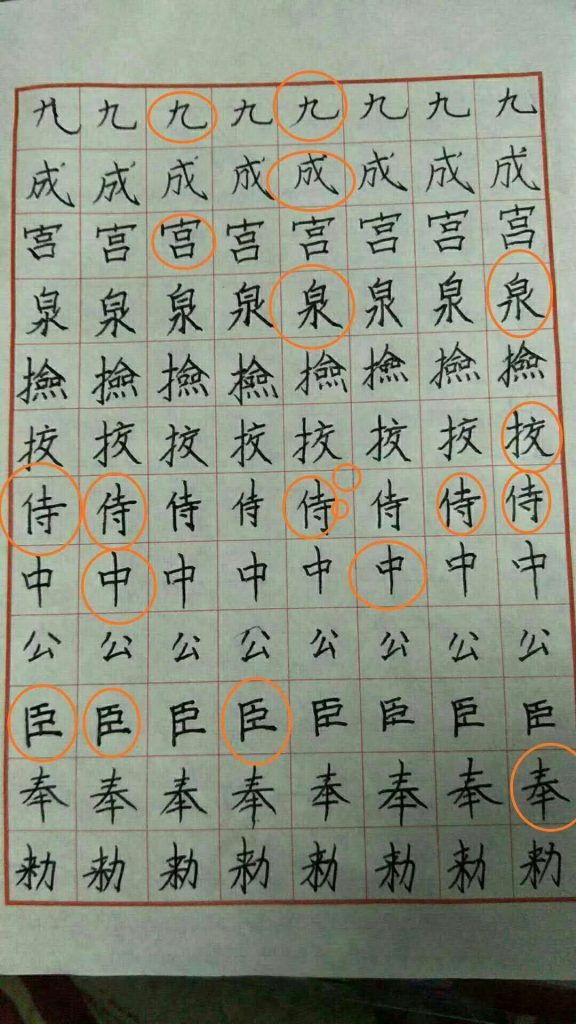 九九九九九九九九
成成成成成成成成
宫宫宫宫宫宫宫宫
泉泉泉泉泉泉泉泉
撿撿撿撿撿撿撿撿
挍挍挍挍挍挍挍挍
侍侍侍侍侍侍侍侍
中中中中中中中中
公公公公公公公公
臣臣臣臣臣臣臣臣
奉奉奉奉奉奉奉奉
勑勑勑勑勑勑勑勑